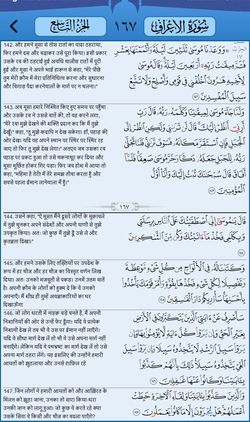 الجزء التاسع
١٦٧
سورة الأعراف
142. और हमने मूसा से तीस रातों का वादा ठहराया,
फिर हमने दस और बढ़ाकर उसे पूरा किया। इसी प्रकार
उसके रब की ठहराई हुई अवधि चालीस रातों में पूरी
हुई और मूसा ने अपने भाई हारून से कहा, "मेरे पीछे
तुम मेरी क़ौम में मेरा प्रतिनिधित्व करना और सुधारना
और बिगाड़ पैदा करनेवालों के मार्ग पर न चलना।"
۞ وَوَٰعَدْنَا مُوسَىٰ ثَلَٰثِينَ لَيْلَةً وَأَتْمَمْنَٰهَا بِعَشْرٍ
فَتَمَّ مِيقَٰتُ رَبِّهِۦٓ أَرْبَعِينَ لَيْلَةً وَقَالَ مُوسَىٰ
لِأَخِيهِ هَٰرُونَ ٱخْلُفْنِى فِى قَوْمِى وَأَصْلِحْ وَلَا تَتَّبِعْ
سَبِيلَ ٱلْمُفْسِدِينَ ١٤٢
143. अब मूसा हमारे निश्चित किए हुए समय पर पहुँचा
और उसके रब ने उससे बातें कीं, तो वह कहने लगा,
"मेरे रब! मुझे देखने की शक्ति प्रदान कर कि मैं तुझे
देखूँ।" कहा, "तू मुझे कदापि न देख सकेगा। हाँ, पहाड़ की
ओर देख। यदि वह अपने स्थान पर स्थिर रह स्थिर रह
जाए तो फिर तू मुझे देख लेगा।" अतएव जब उसका रब
पहाड़ पर प्रकट हुआ तो उसे चकनाचूर कर दिया और
मूसा मूर्छित होकर गिर पड़ा। फिर जब होश में आया तो
कहा, "महिमा है तेरी! मैं तेरे समक्ष तौबा करता हूँ और
सबसे पहला ईमान लानेवाला मैं हूँ।"
وَلَمَّا جَآءَ مُوسَىٰ لِمِيقَٰتِنَا وَكَلَّمَهُۥ رَبُّهُۥ قَالَ رَبِّ
أَرِنِىٓ أَنظُرْ إِلَيْكَ قَالَ لَن تَرَىٰنِى وَلَٰكِنِ ٱنظُرْ إِلَى
ٱلْجَبَلِ فَإِنِ ٱسْتَقَرَّ مَكَانَهُۥ فَسَوْفَ تَرَىٰنِى فَلَمَّا تَجَلَّىٰ
رَبُّهُۥ لِلْجَبَلِ جَعَلَهُۥ دَكًّا وَخَرَّ مُوسَىٰ صَعِقًا فَلَمَّآ
أَفَاقَ قَالَ سُبْحَٰنَكَ تُبْتُ إِلَيْكَ وَأَنَا۠ أَوَّلُ
ٱلْمُؤْمِنِينَ ١٤٣
١٦٧
144. उसने कहा, "ऐ मूसा! मैंने दूसरे लोगों के मुक़ाबले
में तुझे चुनकर अपने संदेशों और अपनी वाणी से तुझे
उपकृत किया। अतः जो कुछ मैं तुझे दूँ उसे ले और
कृतज्ञता दिखा।"
قَالَ يَٰمُوسَىٰٓ إِنِّى ٱصْطَفَيْتُكَ عَلَى ٱلنَّاسِ بِرِسَٰلَٰتِى
وَبِكَلَٰمِى فَخُذْ مَآ ءَاتَيْتُكَ وَكُن مِّنَ ٱلشَّٰكِرِينَ ١٤٤
145. और हमने उसके लिए तख़्तियों पर उपदेश के
रूप में हर चीज़ और हर चीज़ का विस्तृत वर्णन लिख
दिया। अतः उनको मज़बूती से पकड़। उनमें उत्तम बातें
हैं। अपनी क़ौम के लोगों को हुक्म दे कि वे उनको
अपनाएँ। मैं शीघ्र ही तुम्हें अवज्ञाकारियों का घर
दिखाऊँगा
وَكَتَبْنَا لَهُۥ فِى ٱلْأَلْوَاحِ مِن كُلِّ شَىْءٍ مَّوْعِظَةً
وَتَفْصِيلًا لِّكُلِّ شَىْءٍ فَخُذْهَا بِقُوَّةٍ وَأْمُرْ قَوْمَكَ يَأْخُذُوا۟
بِأَحْسَنِهَا سَأُو۟رِيكُمْ دَارَ ٱلْفَٰسِقِينَ ١٤٥
146. जो लोग धरती में नाहक़ बड़े बनते हैं, मैं अपनी
निशानियों की ओर से उन्हें फेर दूँगा। यदि वे प्रत्येक
निशानी देख लें तब भी वे उस पर ईमान नहीं लाएँगे।
यदि वे सीधा मार्ग देख लें तो भी वे उसे अपना मार्ग नहीं
बनाएँगे। लेकिन यदि वे पथभ्रष्ट का मार्ग देख लें तो उसे
अपना मार्ग ठहरा लेंगे। यह इसलिए की उन्होंने हमारी
आयतों को झुठलाया और उनसे ग़ाफ़िल रहे
سَأَصْرِفُ عَنْ ءَايَٰتِىَ ٱلَّذِينَ يَتَكَبَّرُونَ فِى ٱلْأَرْضِ
بِغَيْرِ ٱلْحَقِّ وَإِن يَرَوْا۟ كُلَّ ءَايَةٍ لَّا يُؤْمِنُوا۟ بِهَا وَإِن
يَرَوْا۟ سَبِيلَ ٱلرُّشْدِ لَا يَتَّخِذُوهُ سَبِيلًا وَإِن يَرَوْا۟
سَبِيلَ ٱلْغَىِّ يَتَّخِذُوهُ سَبِيلًا ذَٰلِكَ بِأَنَّهُمْ كَذَّبُوا۟
بِـَٔايَٰتِنَا وَكَانُوا۟ عَنْهَا غَٰفِلِينَ ١٤٦
147. जिन लोगों ने हमारी आयतों को और आख़िरत के
मिलन को झूठा जाना, उनका तो सारा किया-धरा
उनकी जान को लागू हुआ। जो कुछ वे करते रहे क्या
उसके सिवा वे किसी और चीज़ का बदला पाएँगे?
وَٱلَّذِينَ كَذَّبُوا۟ بِـَٔايَٰتِنَا وَلِقَآءِ ٱلْءَاخِرَةِ حَبِطَتْ
أَعْمَٰلُهُمْ هَلْ يُجْزَوْنَ إِلَّا مَا كَانُوا۟ يَعْمَلُونَ ١٤٧